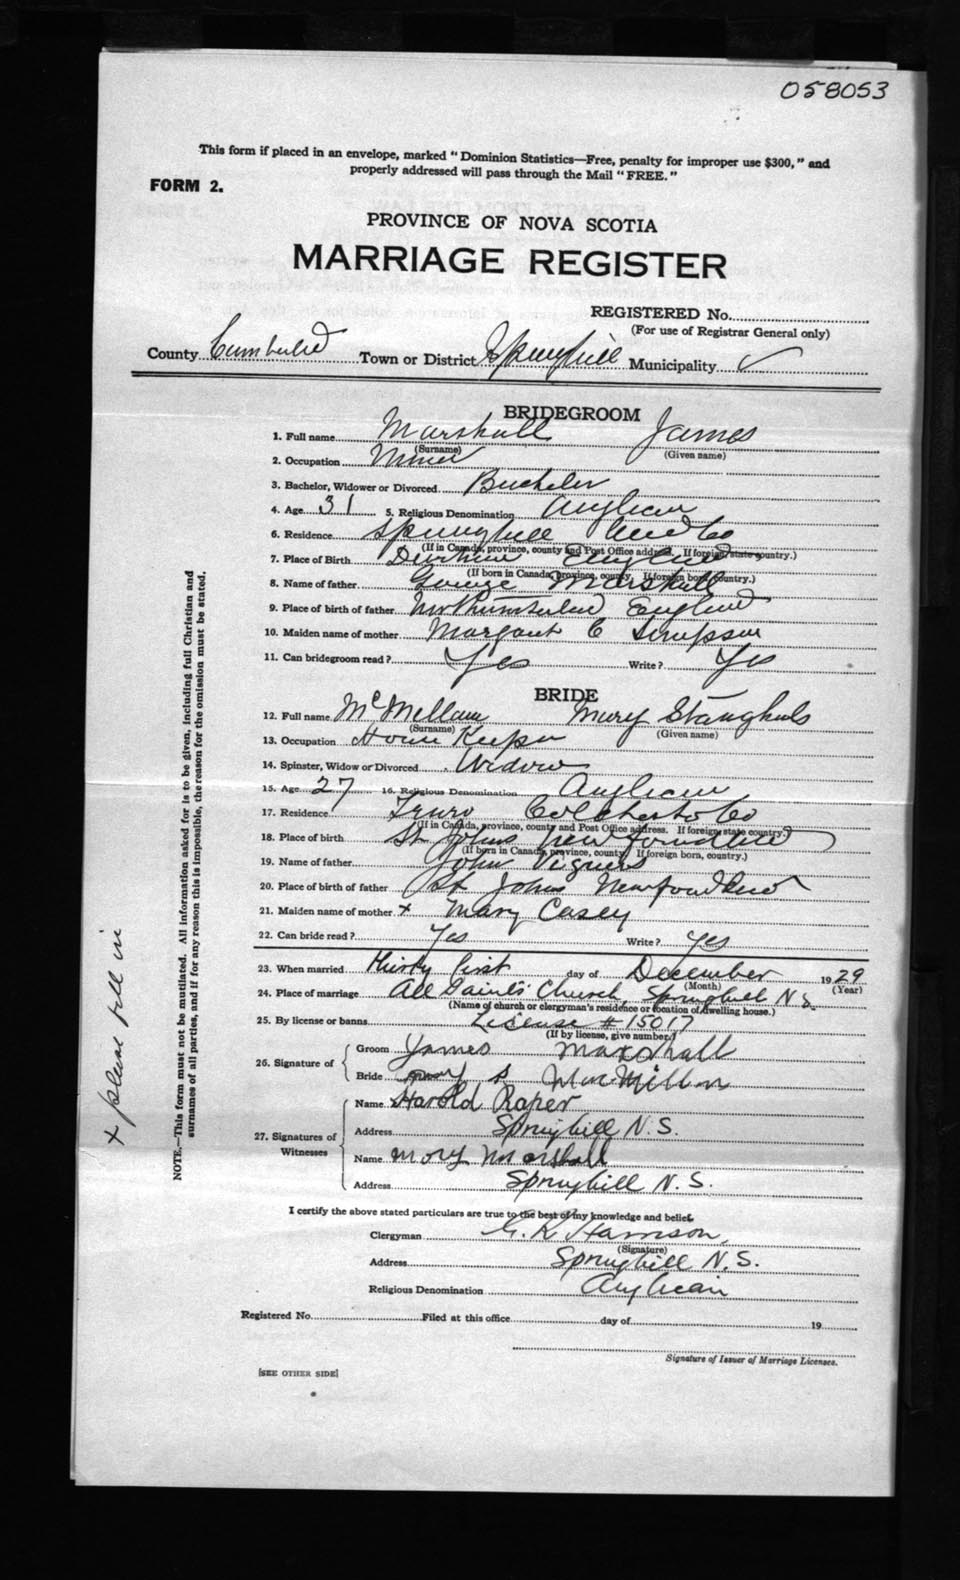 058053
This form if placed in an envelope, marked "Dominion Statistics—Free, penalty for improper use $300," and
properly addressed will pass through the Mail "FREE."
FORM 2.
PROVINCE OF NOVA SCOTIA
MARRIAGE REGISTER
REGISTERED No.
(For use of Registrar General only)
County Cumberland Town or District Springhill Municipality ✓
BRIDEGROOM
1. Full name Marshall James
(Surname) (Given name)
2. Occupation Miner
3. Bachelor, Widower or Divorced Bachelor
4. Age 31 5. Religious Denomination Anglican
6. Residence Springhill Cumb Co
(If in Canada, province, county and Post Office address. If foreign, state country.)
7. Place of Birth Durham England
(If born in Canada, province, county. If foreign born, country.)
8. Name of father George Marshall
9. Place of birth of father Northumberland England
10. Maiden name of mother Margaret C Simpson
11. Can bridegroom read? Yes Write? Yes
BRIDE
12. Full name McMellan Mary
(Surname) (Given name)
13. Occupation House Keeper
14. Spinster, Widow or Divorced Widow
15. Age 27 16. Religious Denomination Anglican
17. Residence Truro Colchester Co
(If in Canada, province, county and Post Office address. If foreign, state country.)
18. Place of birth St Johns New foundland
(If born in Canada, province, county. If foreign born, country.)
19. Name of father John
20. Place of birth of father St Johns Newfoundland
21. Maiden name of mother x Mary Casey
22. Can bride read? Yes Write? Yes
23. When married thirty first day of December 1929
(Month) (Year)
24. Place of marriage All Saints' Church, Springhill N.S.
(Name of church or clergyman's residence or location of dwelling house.)
25. By license or banns License # 15017
(If by license, give number.)
26. Signature of
Groom James Marshall
Bride Mary S MacMillan
27. Signatures of Witnesses
Name Harold Raper
Address Springhill N.S.
Name Mary Marshall
Address Springhill N.S.
I certify the above stated particulars are true to the best of my knowledge and belief.
Clergyman G. K. Harrison,
(Signature)
Address Springhill N.S.
Religious Denomination Anglican
Registered No. Filed at this office day of 19
Signature of Issuer of Marriage Licenses.
[SEE OTHER SIDE]
NOTE.—This form must not be mutilated. All information asked for is to be given, including full Christian and
surnames of all parties, and if for any reason this is impossible, the reason for the omission must be stated.
x please fill in